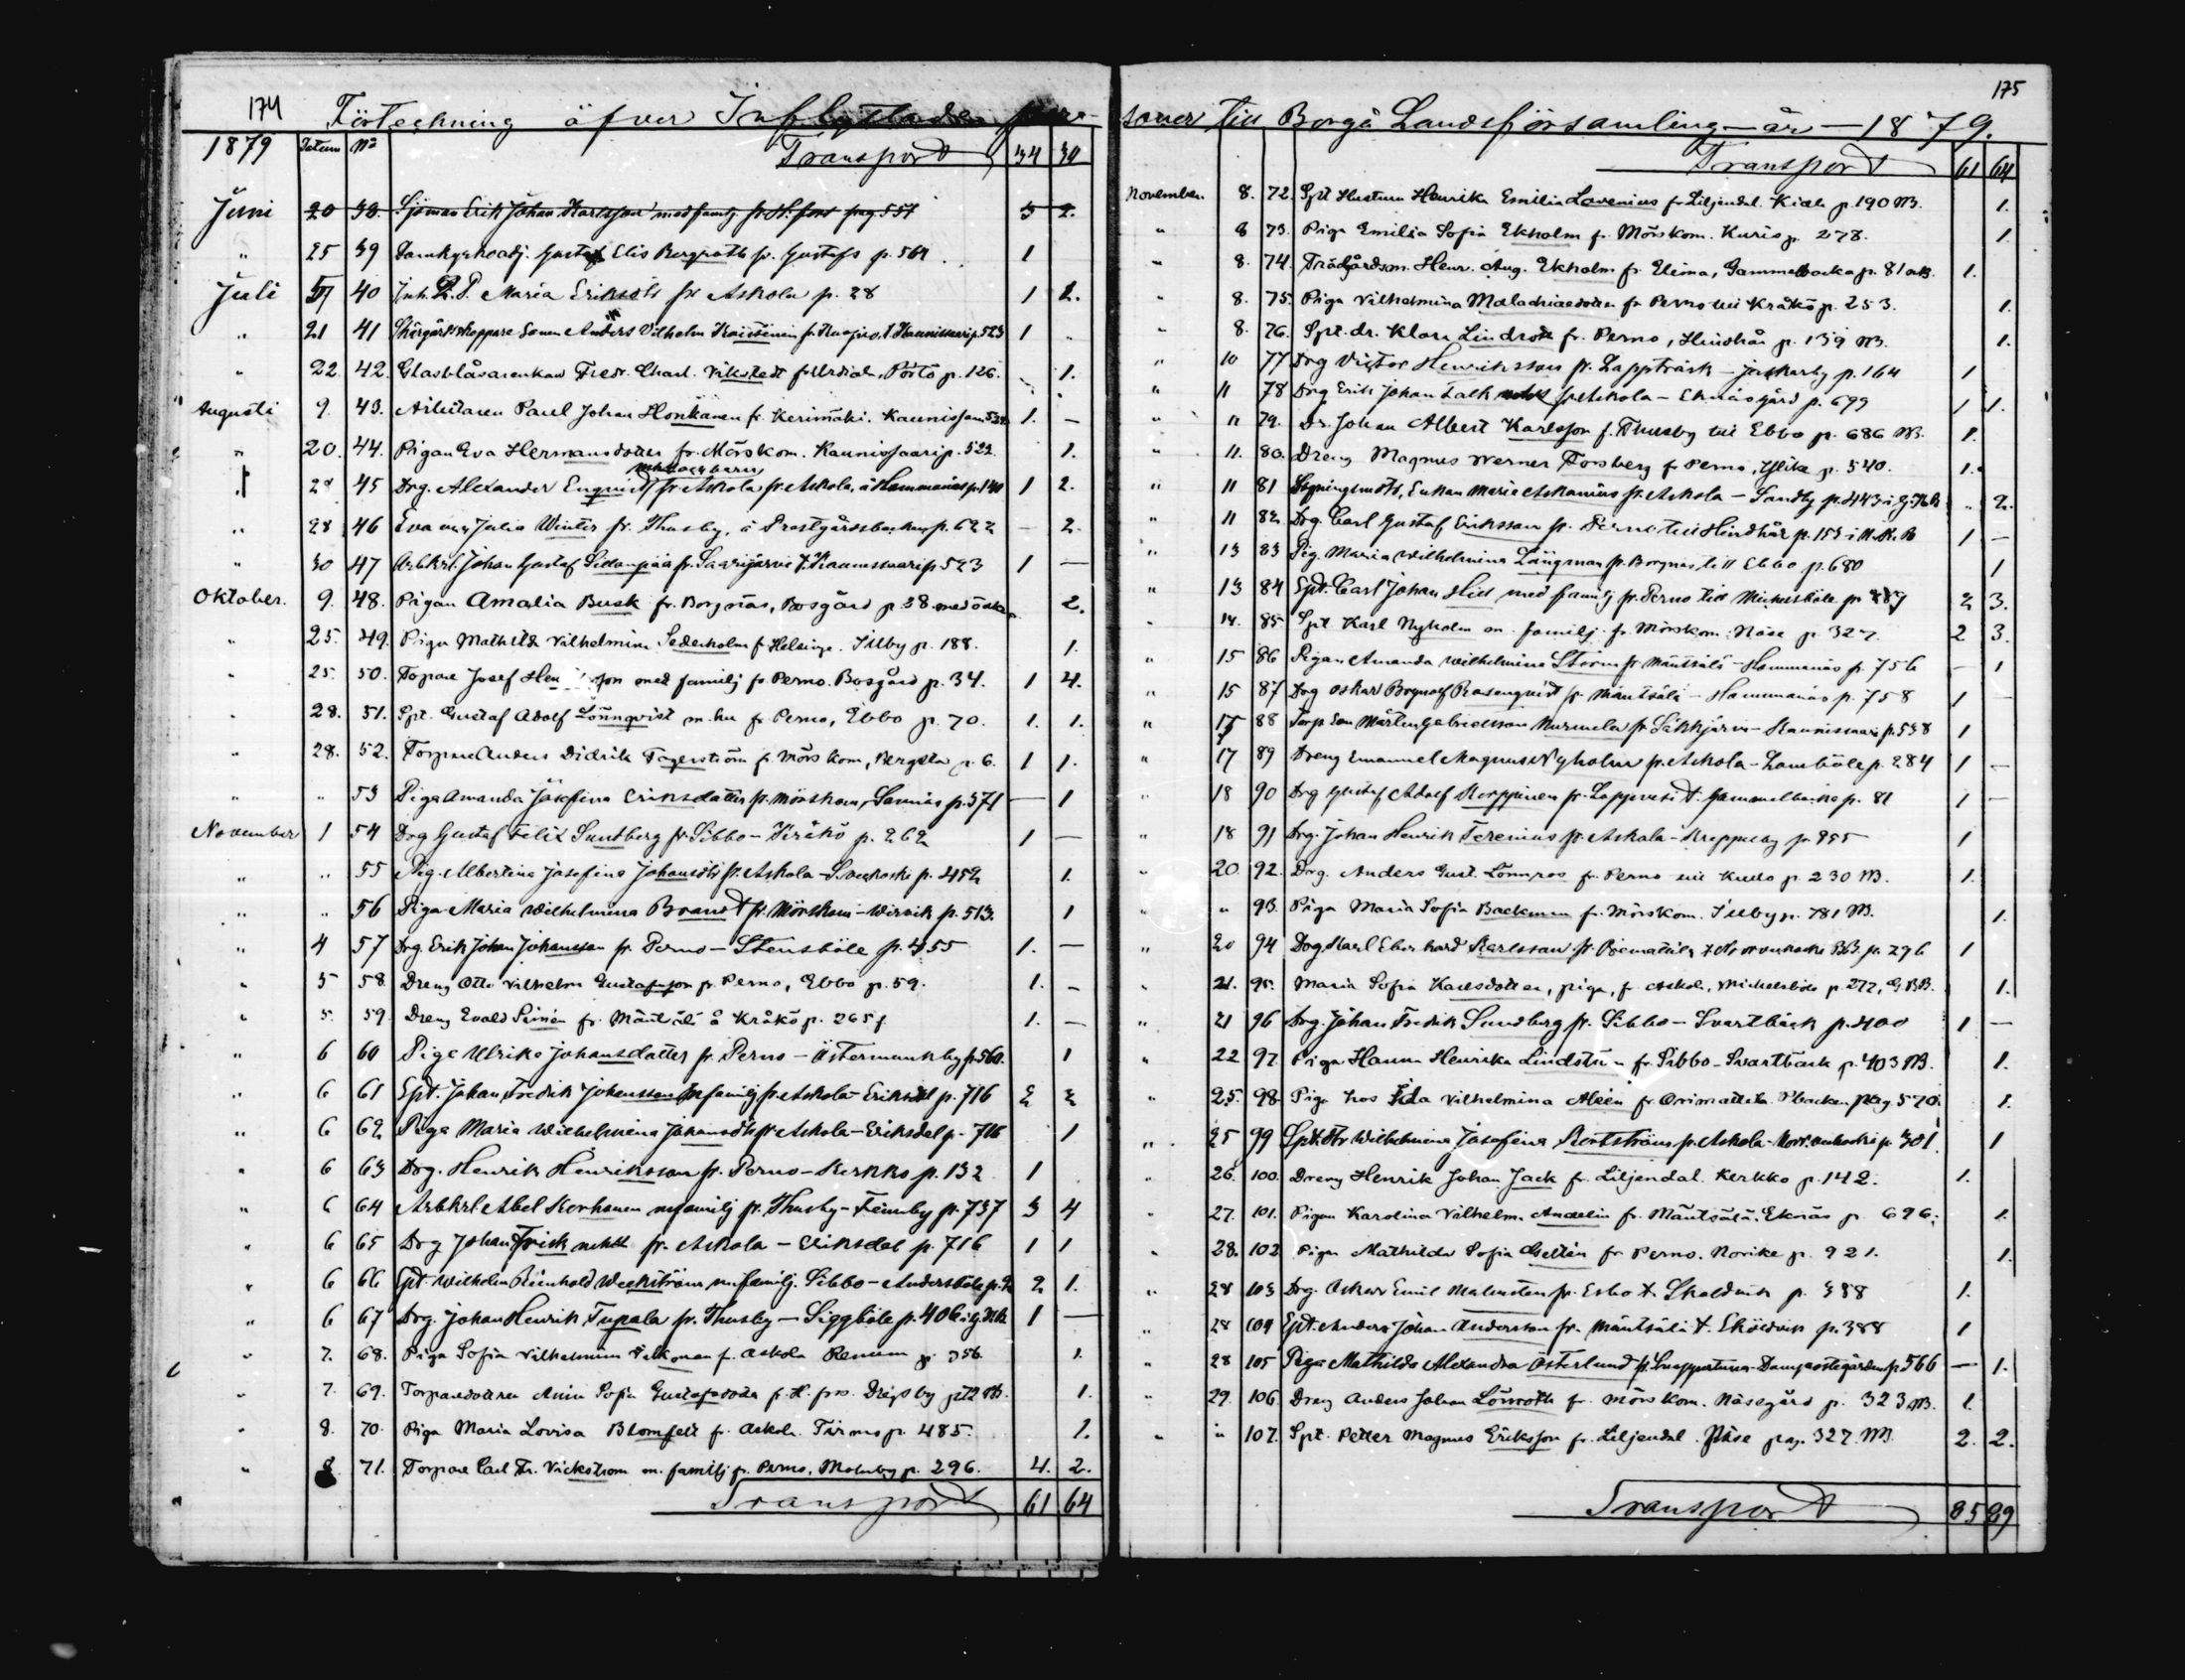 174
Förteckning öfver Inflyttade per-
1879 Datum No Transport 34 30
Juni 20 38. Sjöman Erik Johan Karlsson med familj fr. H.fors pag. 557 3 2.
" 25 39 Domkyrkoadj. Gustaf Elis Bergroth fr. Gustafs p. 564. 1
Juli 40 Inh. Maria Eriksdtr fr Askola p. 28 1 2.
" 21 41 Skärgårdskeppare Sonen Anders Vilhelm p. 523 1 "
" 22. 42. Glasblåsarenkan Fredr. Charl. Vikstedt Pörtö p. 126. 1.
Augusti 9. 43. Arbetaren Paul Johan Honkanen fr. Kerimäki. 1. —
" 20. 44. Pigan Eva Hermansdotter fr. Mörskom. Kaunissaari p. 522. 1.
" 28 45 Drg. Alexander Enqvist fr Askola fr. Askola, å Hammarnäs p. 140 1 2.
" 28 46 Eva Julia Winter fr. Thusby, å Prestgårdsbacken p. 622 — 2.
" 30 47 Arbkrl. Johan Gustaf Sidanpää fr. Saarijärvi t. Kaunissaari p. 523 1 —
Oktober. 9. 48. Pigan Amalia Busk fr. Borgnäs, Bosgård p. 38 med 2.
" 25. 49. Pigan Mathilda Vilhelmina Sederholm f. Helsinge. Illby p. 188. 1.
" 25. 50. Torpare Josef med familj fr Perno. Bosgård p. 34. 1 4.
" 28. 51. Spt. Gustaf Adolf Lönnqvist m. hu fr. Perno, Ebbo p. 70. 1. 1.
" 28. 52. Torparen Anders Didrik Fagerström fr. Mörskom, Bergsta p. 6. 1 1.
" " 53 Piga Amanda Josefina Eriksdotter fr. Mörskom, p. 371 — 1
November 1 54 Drg Gustaf Felix Sundberg fr. Sibbo – Kråkö p. 262 1 —
" " 55 Pig. Albertina Josefina Johansdtr fr. Askola – p. 452 1.
" " 56 Piga Maria Wilhelmina Brandt fr. Mörskom – Wirvik p. 513. 1
" 4 57 Drg. Erik Johan Johansson fr. Perno – Stensböle p. 455 1. —
" 5 58. Dreng Otto Vilhelm Gustafsson fr. Perno, Ebbo p. 59. 1. —
" 5. 59. Dreng Evald Simén fr. Mäntsälä å Kråkö p. 265 1. —
" 6 60 Piga Ulrika Johansdotter fr. Perno – Östermunkby p. 560. 1
" 6 61 Spt. Johan Fredrik Johansson m familj fr. Askola – Eriksdal p. 716 2 2
" 6 62 Piga Maria Wilhelmina Johansdtr fr Askola – Eriksdal p. 716 1
" 6 63 Drg. Henrik Henriksson fr. Perno – Kerkko p. 132 1
" 6 64 Arbkrl. Abel Korhonen m familj fr. Thusby – Temby p. 737 3 4
" 6 65 Drg Johan Frisk m htt fr. Askola – Eriksdal p. 716 1 1
" 6 66 Spt. Wilhelm Reinhold Weckström m familj. Sibbo – Andersböle p. 2 1.
" 6 67 Drg. Johan Henrik Tupala fr. Thusby – Siggböle p. 406 1 —
" 7. 68. Piga Sofia Vilhelmina Valkonen f. Askola Renum p. 356. 1.
" 7. 69. Torparedottren Anna Sofia Gustafsdotter f. H.fors. Drägsby 1.
" 8. 70. Piga Maria Lovisa Blomfelt fr. Askola. Tirmo p. 485. 1.
" 8. 71. Torpare Carl Fr. Vickstrom m. familj fr. Perno, Molnby p. 296. 4. 2.
Transport 61 64
175
soner till Borgå Landsförsamling – år – 1879.
Transport 61 64
November. 8. 72. Spt Hustrun Henrika Emilia Lovenius fr Liljendal. Kiala p. 190 M. 1.
" 8 73. Piga Emilia Sofia Ekholm fr. Mörskom. Kuris p. 278. 1.
" 8. 74. Trädgårdsm. Henr. Aug. Ekholm fr. Elima, Gammelbacka p. 81 1.
" 8. 75. Piga Vilhelmina Malachiasdotter fr Perno till Kråkö p. 253. 1.
" 8. 76. Spt. dr. Klara Lindroth fr. Perno, Hindhår p. 159 M. 1.
" 10 77 Drg Victor Henriksson fr. Lappträsk – Jackarby p. 164 1
" 11 78 Drg Erik Johan Falk fr Askola – Eknäs gård p. 699 1 1.
" 11 79. Dr. Johan Albert Karlsson f. Thusby till Ebbo p. 686 M. 1.
" 11. 80. Dreng Magnus Werner Forsberg fr Perno, Ylike p. 540. 1.
" 11 81 Enkan Maria Askanius fr. Askola – Sandby p. 443 " 2.
" 11 82. Drg. Carl Gustaf Eriksson fr. Perno till Hindhår p. 153 1 —
" 13 83 Pig. Maria Wilhelmina Långman fr. Borgnäs till Ebbo p. 680 1
" 13 84 Spt. Carl Johan Hid med familj fr. Perno till Mickelsböle p. 2 3.
" 14. 85. Spt Karl Nyholm m. familj fr. Mörskom. Näse p. 327. 2 3.
" 15 86 Pigan Amanda Wilhelmina Storm fr Mäntsälä – Hammarnäs p. 756 — 1
" 15 87 Drg Oskar Rosenqvist fr Mäntsälä – Hammarnäs p. 758 1 —
" 17 88 Torp. Son Mårten Gabrielsson Murmela fr. Säkkjärvi – Kaunissaari p. 538 1
" 17 89 Dreng Emanuel Magnus Nyholm fr. Askola – p. 284 1 —
" 18 90 Drg Gustaf Adolf Korppinen fr. Lappvesi t. Gammelbacka p. 81 1 —
" 18 91 Drg. Johan Henrik Terenius fr. Askola – p. 1
" 20. 92. Drg. Anders Gust. Lönnros fr. Perno till Kullo p. 230 M. 1.
" " 93. Piga Maria Sofia Backman fr. Mörskom. Illby p. 781 M. 1.
" 20 94 Drg. Karl Eberhard Karlsson fr. p. 296 1
" 21. 95. Maria Sofia Karlsdotter, piga, fr. Askola, Mickelsböle p. 272, 1.
" 21 96 Drg. Johan Fredrik Sundberg fr. Sibbo – Svartbäck p. 400 1 —
" 22 97. Piga Hanna Henrika Lindström fr. Sibbo – Svartbäck p. 403 M. 1.
" 25. 98. Piga hos Ida Vilhelmina Alén fr. Orimattila. pag 570. 1.
" 25 99 Spt. Dtr Wilhelmina Josefina fr. Askola. p. 301. 1
" 26. 100. Dreng Henrik Johan Jack fr. Liljendal. Kerkko p. 142. 1.
" 27. 101. Pigan Karolina Vilhelm. Andelin fr. Mäntsälä. Eknäs p. 696. 1.
" 28. 102 Piga Mathilda Sofia Gellin fr Perno. Norike p. 921. 1.
" 28 103 Drg. Oskar Emil Malmsten fr. Esbo t. Sköldvik p. 388 1.
" 28 104 Spt. Anders Johan Andersson fr. Mäntsälä t. Sköldvik p. 388 1
" 28 105 Piga Mathilda Alexandra Österlund fr. Snappertuna – Domprostgården p. 566 — 1.
" 29. 106. Dreng Anders Johan Lönroth fr. Mörskom. Näsegård p. 323 M. 1.
" " 107. Spt. Petter Magnus Eriksson fr. Liljendal. Näse pag. 327. M. 2. 2.
Transport 85 89